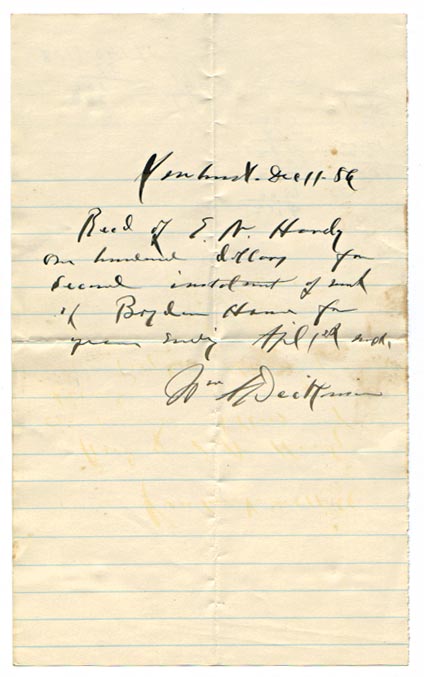 Amherst. Dec 11. 86
Recd of E. N. Hardy
one hundred dollars for
second instalment of rent
of Boyden House for
year ending Apl 1st next.
Wm A Dickinson